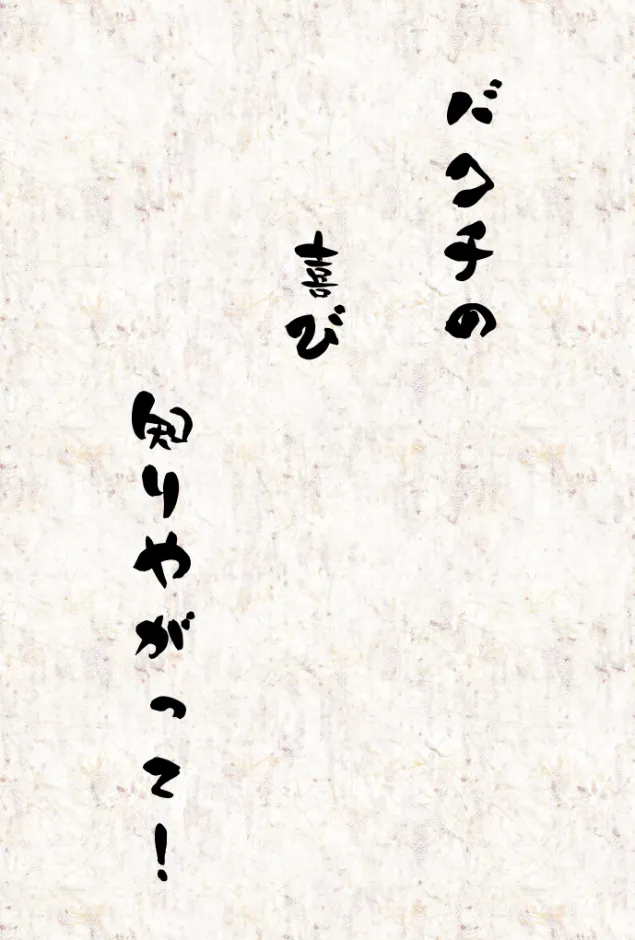 バクチの
喜び
知りやがって!